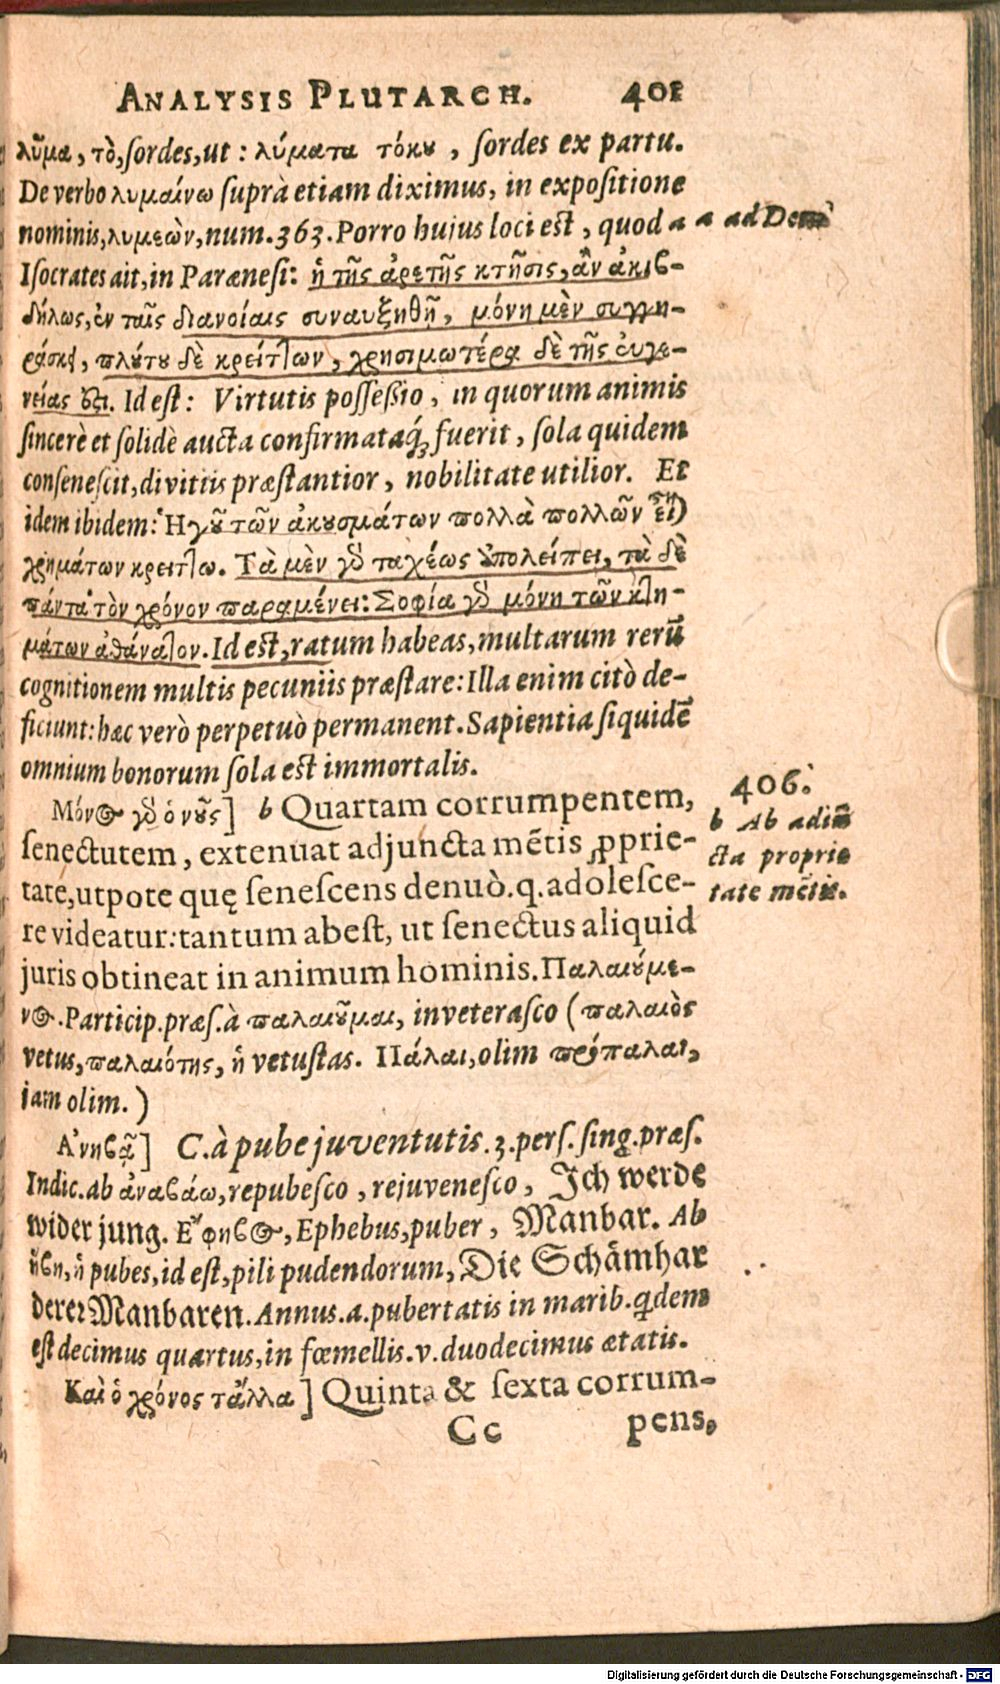 ANALYSIS PLUTARCH. 401
λῦμα, τὸ, sordes, ut: λύματα τόκȣ, sordes ex partu.
De verbo λυμαίνω suprà etiam diximus, in expositione
nominis, λυμεὼν, num. 363. Porro hujus loci est, quod a
a ad Dem
Isocrates ait, in Parænesi: ἡ τῆς ἀρετῆς κτῆσις, ἂν ἀκιβ-
δήλως, ἐν ταῖς διανοίαις συναυξηθῇ, μόνη μὲν συγγη-
ράσκει, πλȣ́τȣ δὲ κρείτlων, χρησιμωτέρα δὲ τῆς εὐγε-
νείας ἐςι. Id est: Virtutis possessio, in quorum animis
sincerè et solidè aucta confirmataq́; fuerit, sola quidem
consenescit, divitiis præstantior, nobilitate utilior. Et
idem ibidem: Ἡγοῦ τῶν ἀκȣσμάτων πολλὰ πολλῶν εἶναι
χρημάτων κρείτlω. Τὰ μὲν γὸ ταχέως ὑπολείπει, τὰ δὲ
πάντα τὸν χρόνον παραμένει: Σοφία γὸ μόνη τῶν κlη-
μάτων ἀθάναlον. Id est, ratum habeas, multarum rerū
cognitionem multis pecuniis præstare: Illa enim citò de-
ficiunt: hæc verò perpetuò permanent. Sapientia siquidē
omnium bonorum sola est immortalis.
Μόνος γὸ ὁ νȣ͂ς] b Quartam corrumpentem,
senectutem, extenuat adjuncta mētis ꝓprie-
tate, utpote quę senescens denuò. q. adolesce-
re videatur: tantum abest, ut senectus aliquid
juris obtineat in animum hominis. Παλαιȣ́με-
νος. Particip. præs. à παλαιȣ͂μαι, inveterasco (παλαιὸς
vetus, παλαιότης, ἡ vetustas. Πάλαι, olim πρόπαλαι,
jam olim.)
406.
b Ab adiū
cta proprie
tate mētis.
Ἀνηβᾷ] C. à pube juventutis. 3. pers. sing. præs.
Indic. ab ἀναβάω, repubesco, rejuvenesco, Ich werde
wider jung. Ἔφηβος, Ephebus, puber, Manbar. Ab
ἥβη, ἡ pubes, id est, pili pudendorum, Die Schåmhar
derer Manbaren. Annus. a. pubertatis in marib. q̃dem
est decimus quartus, in fœmellis. v. duodecimus ætatis.
Καὶ ὁ χρόνος τἄλλα] Quinta & sexta corrum-
Cc pens,
Digitalisierung gefördert durch die Deutsche Forschungsgemeinschaft - DFG